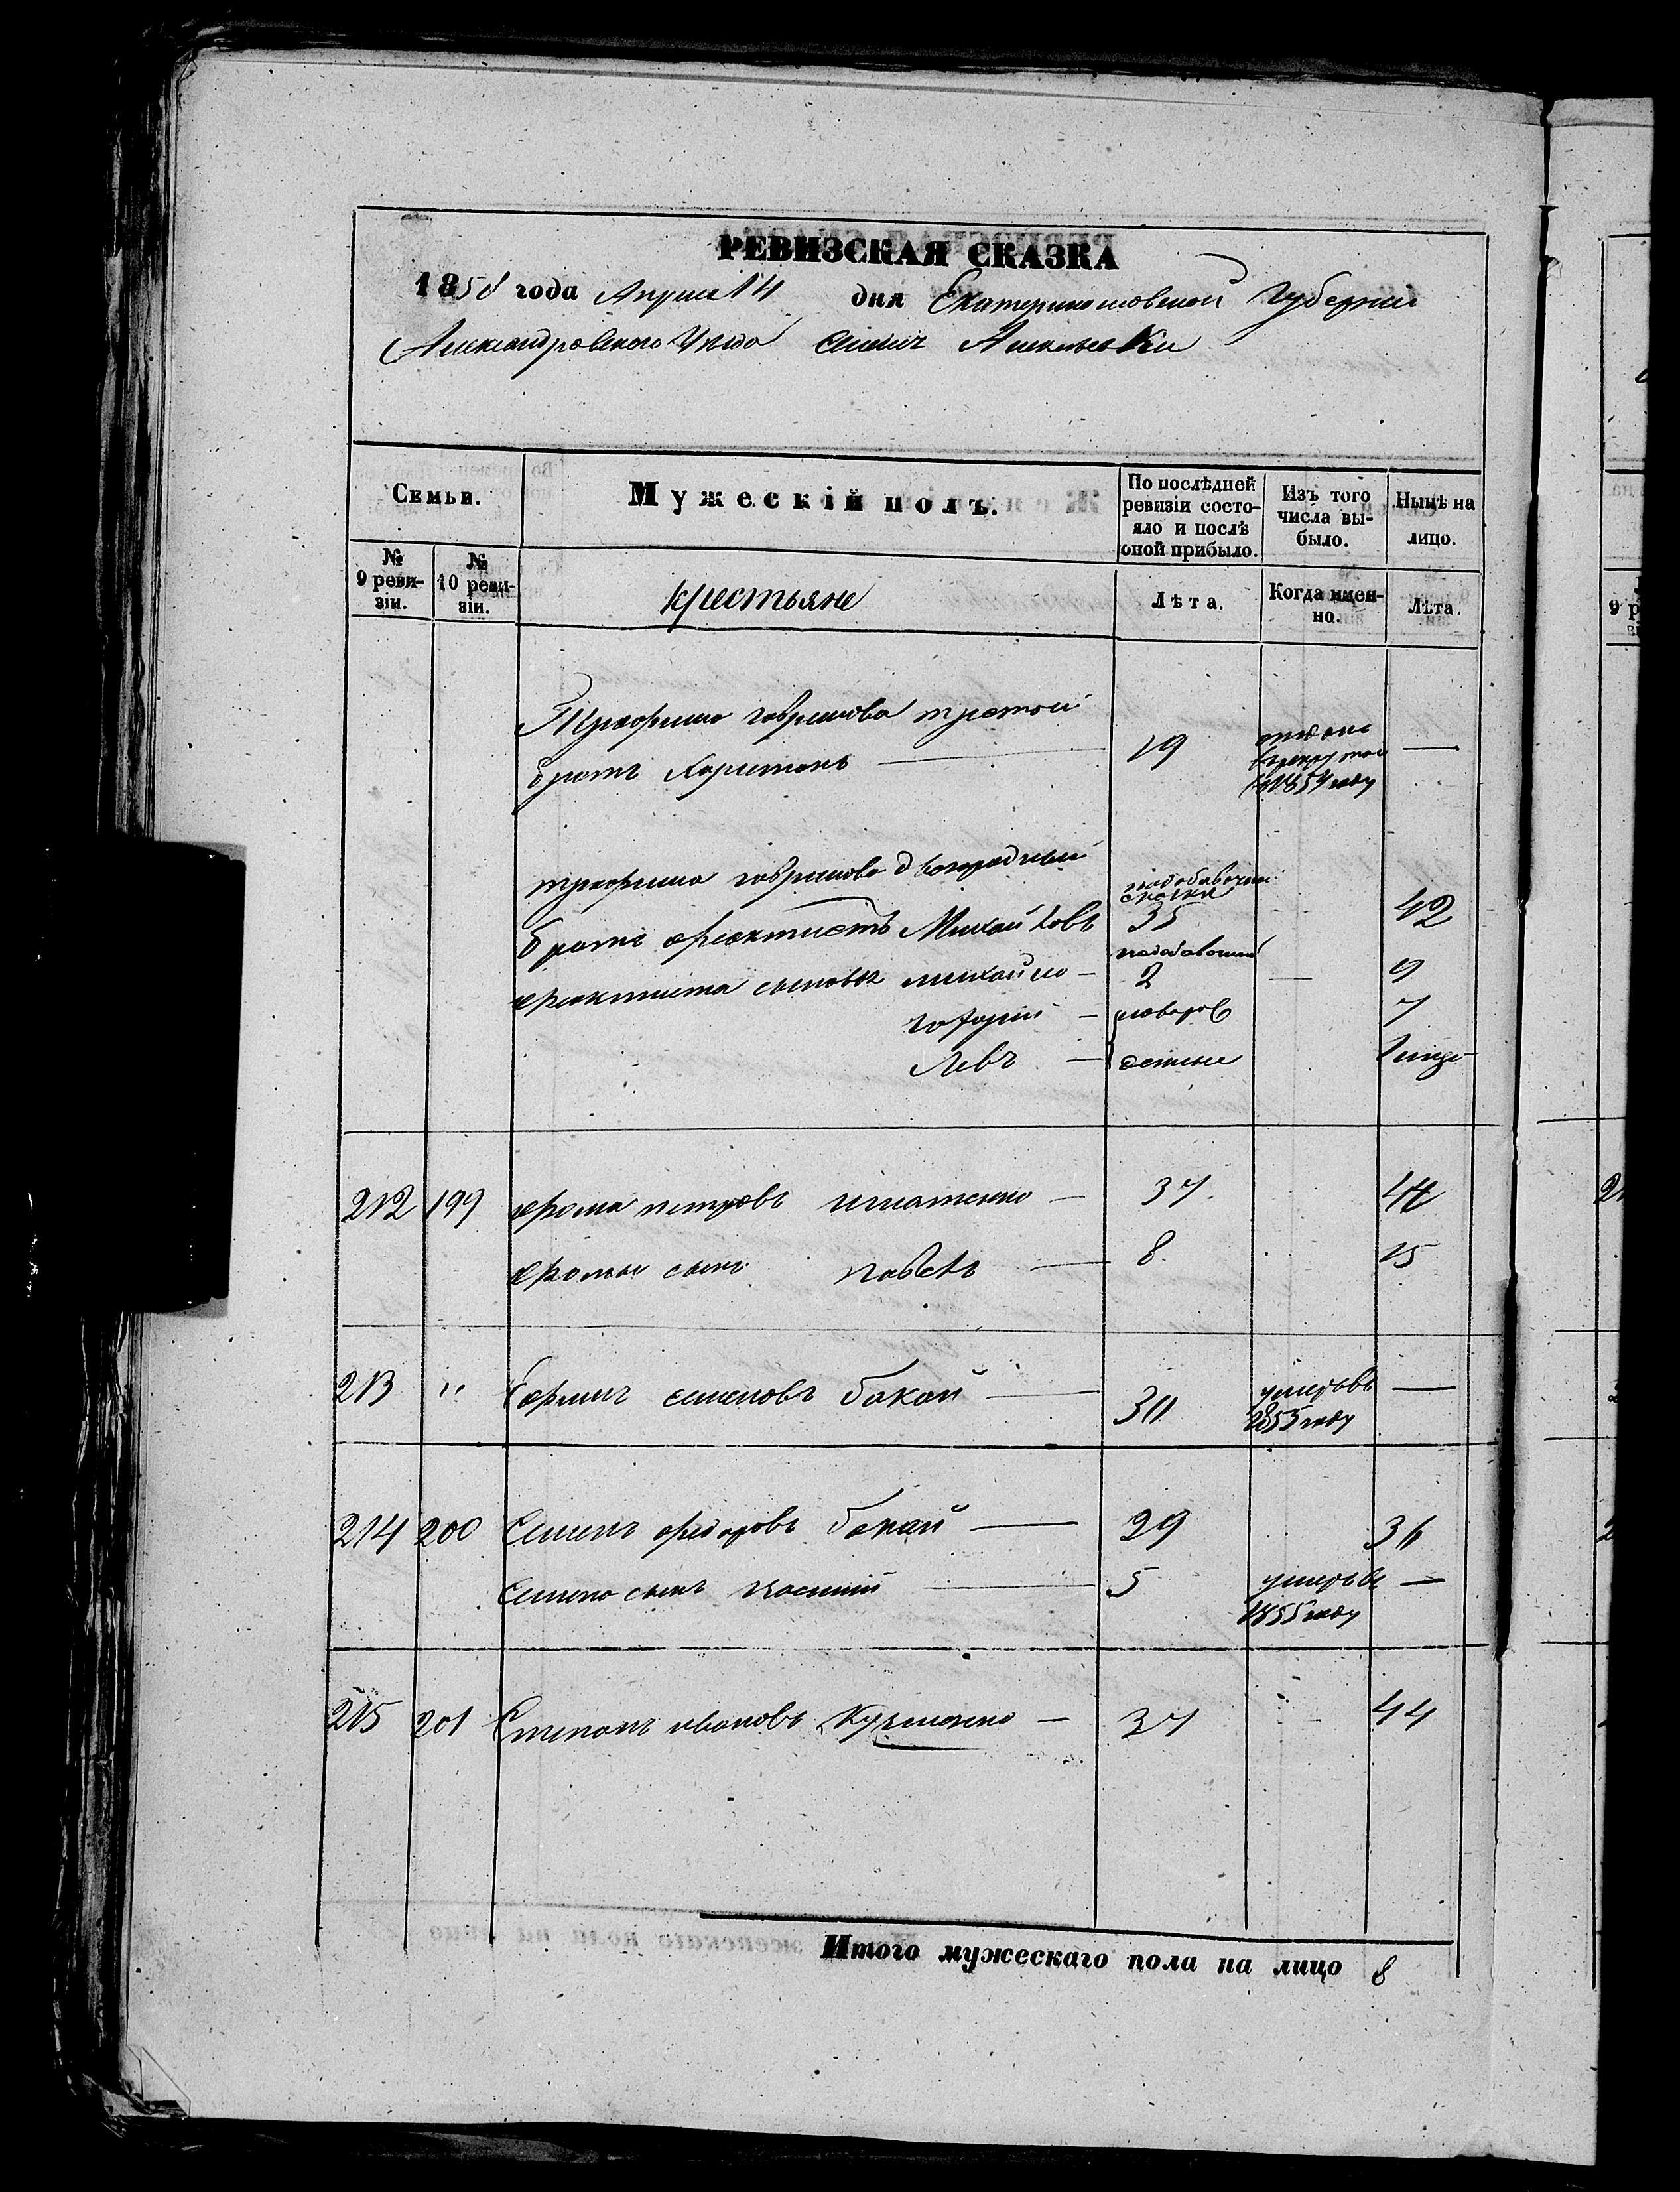 РЕВИЗСКАЯ СКАЗКА
1858 года Апреля 14 дня Екатеринославской Губернии
Александровского Уезда
Семьи.
Мужескій полъ.
По послѣдней ревизіи состояло и послѣ оной прибыло.
Изъ того числа выбыло.
Нынѣ на лицо.
№ 9 ревизіи.
№ 10 ревизіи.
крестьяне
Лѣта.
Когда именно.
Лѣта.
Трофима гаврилова третой
братъ Харитонъ — 19 отданъ в рекруты в 1854 году —
трофима гаврилова двоюродный
братъ феоктистъ Михайловъ 35 42
феоктиста сыновья михайло — 2 — 9
— 7
Левъ —
212 199 фома петровъ игнатенко — 37 44
фомы сынъ павелъ — 8 15
213 " семеновъ бакай — 30 умеръ въ 1855 году —
214 200 Семенъ федоровъ бакай — 29 36
Семена сынъ — 5 умеръ въ 1855 году —
215 201 Степанъ ивановъ Кузменко — 37 44
Итого мужескаго пола на лицо 8